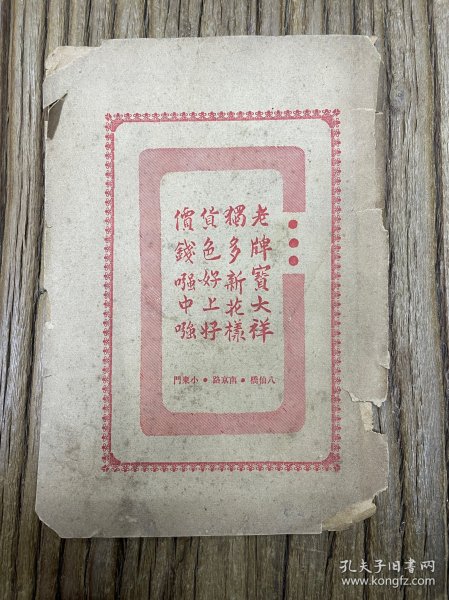 老牌寶大祥
獨多新花樣
貨色好上好
價錢嗴中嗴
八仙橋•南京路•小東門
孔夫子旧书网
www.kongfz.com